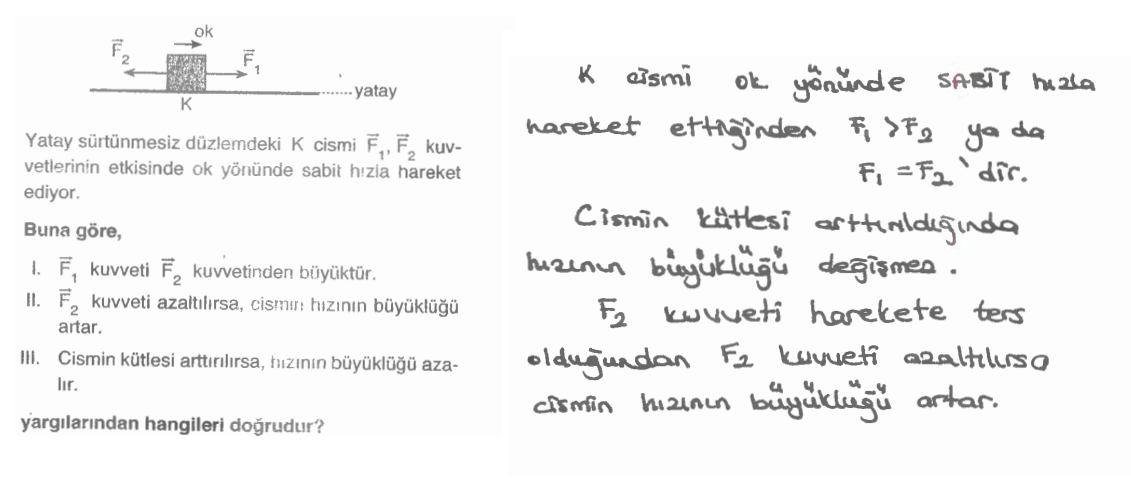 ok
F₂
F₁
K
yatay
Yatay sürtünmesiz düzlemdeki K cismi F₁, F₂ kuv-
vetlerinin etkisinde ok yönünde sabit hızla hareket
ediyor.
Buna göre,
I. F₁ kuvveti F₂ kuvvetinden büyüktür.
II. F₂ kuvveti azaltılırsa, cismin hızının büyüklüğü
artar.
III. Cismin kütlesi arttırılırsa, hızının büyüklüğü aza-
lır.
yargılarından hangileri doğrudur?
K cismi ok yönünde SABİT hızla
hareket ettiğinden F₁ > F₂ ya da
F₁ = F₂' dir.
Cismin kütlesi arttırıldığında
hızının büyüklüğü değişmez.
F₂ kuvveti harekete ters
olduğundan F₂ kuvveti azaltılırsa
cismin hızının büyüklüğü artar.